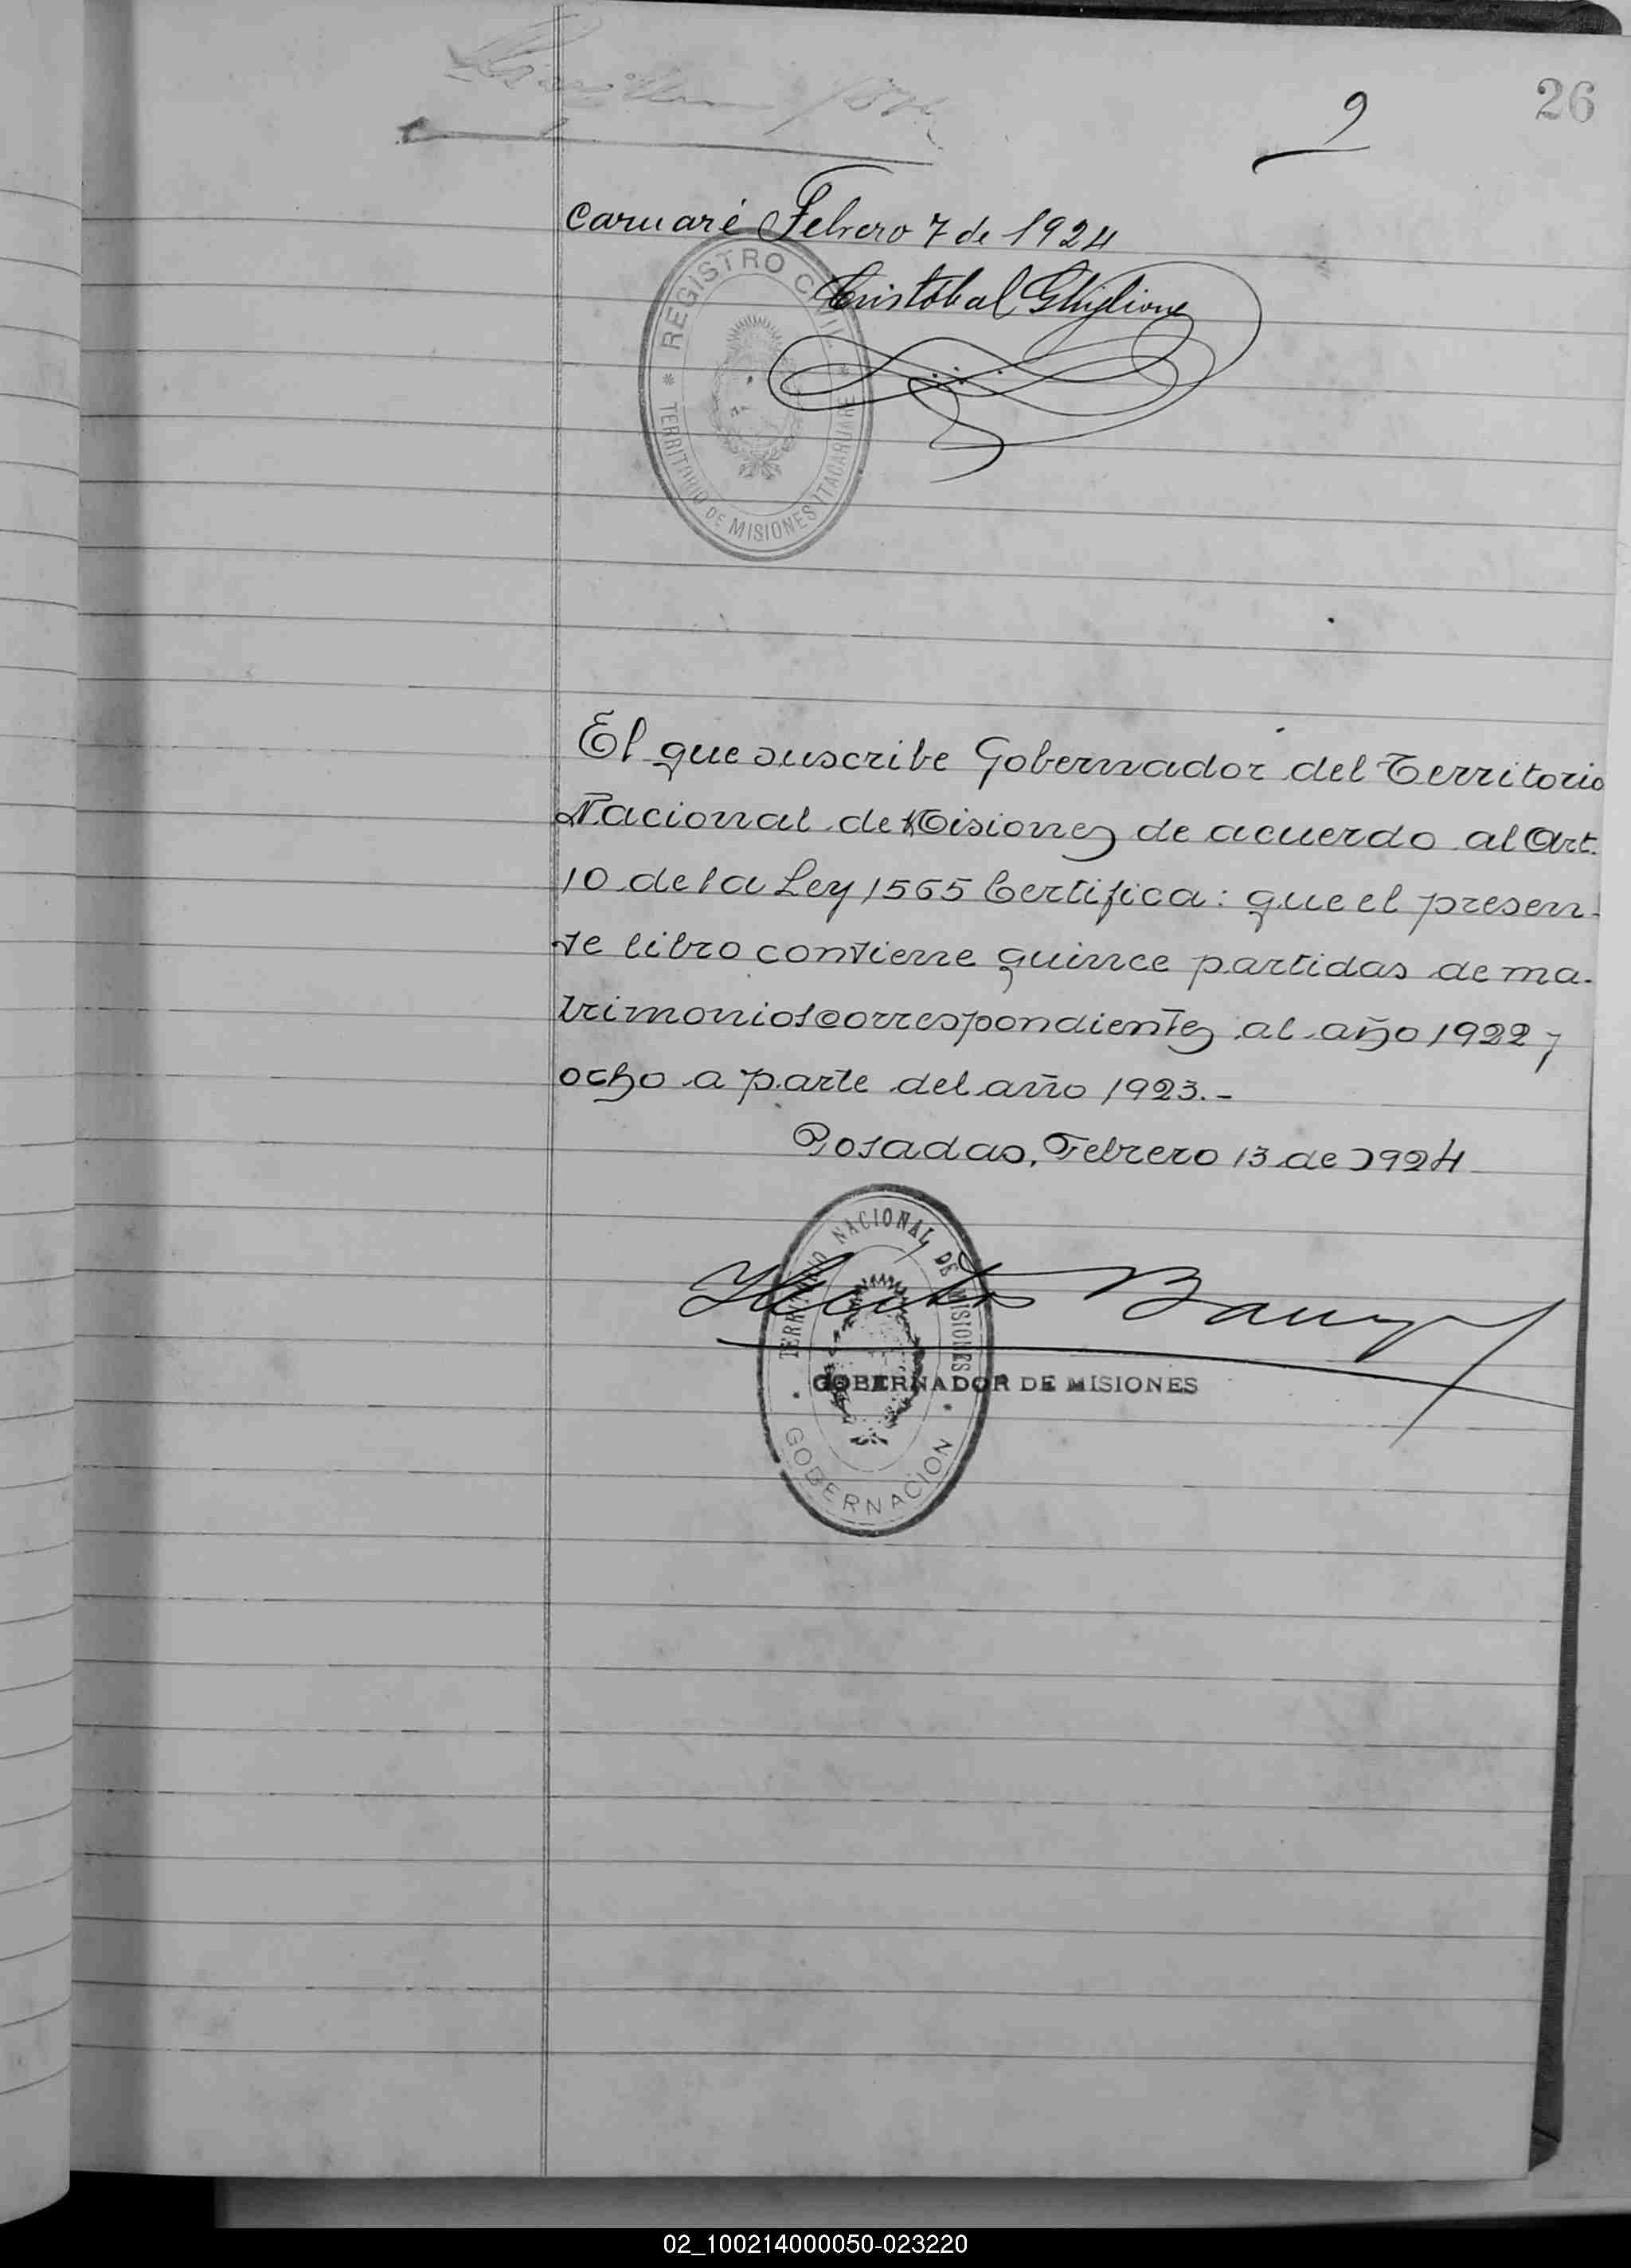 26
9
caruaré Febrero 7 de 1924
Cristóbal Ghiglione
REGISTRO CIVIL
TERRITORIO DE MISIONES ITACARUARE
El que suscribe Gobernador del Territorio
Nacional de Misiones de acuerdo al Art.
10 de la Ley 1565 Certifica: que el presen-
te libro contiene quince partidas de ma-
trimonios correspondientes al año 1922 y
ocho a parte del año 1923.-
Posadas, Febrero 13 de 1924
TERRITORIO NACIONAL DE MISIONES
GOBERNADOR DE MISIONES
GOBERNACION
02_100214000050-023220